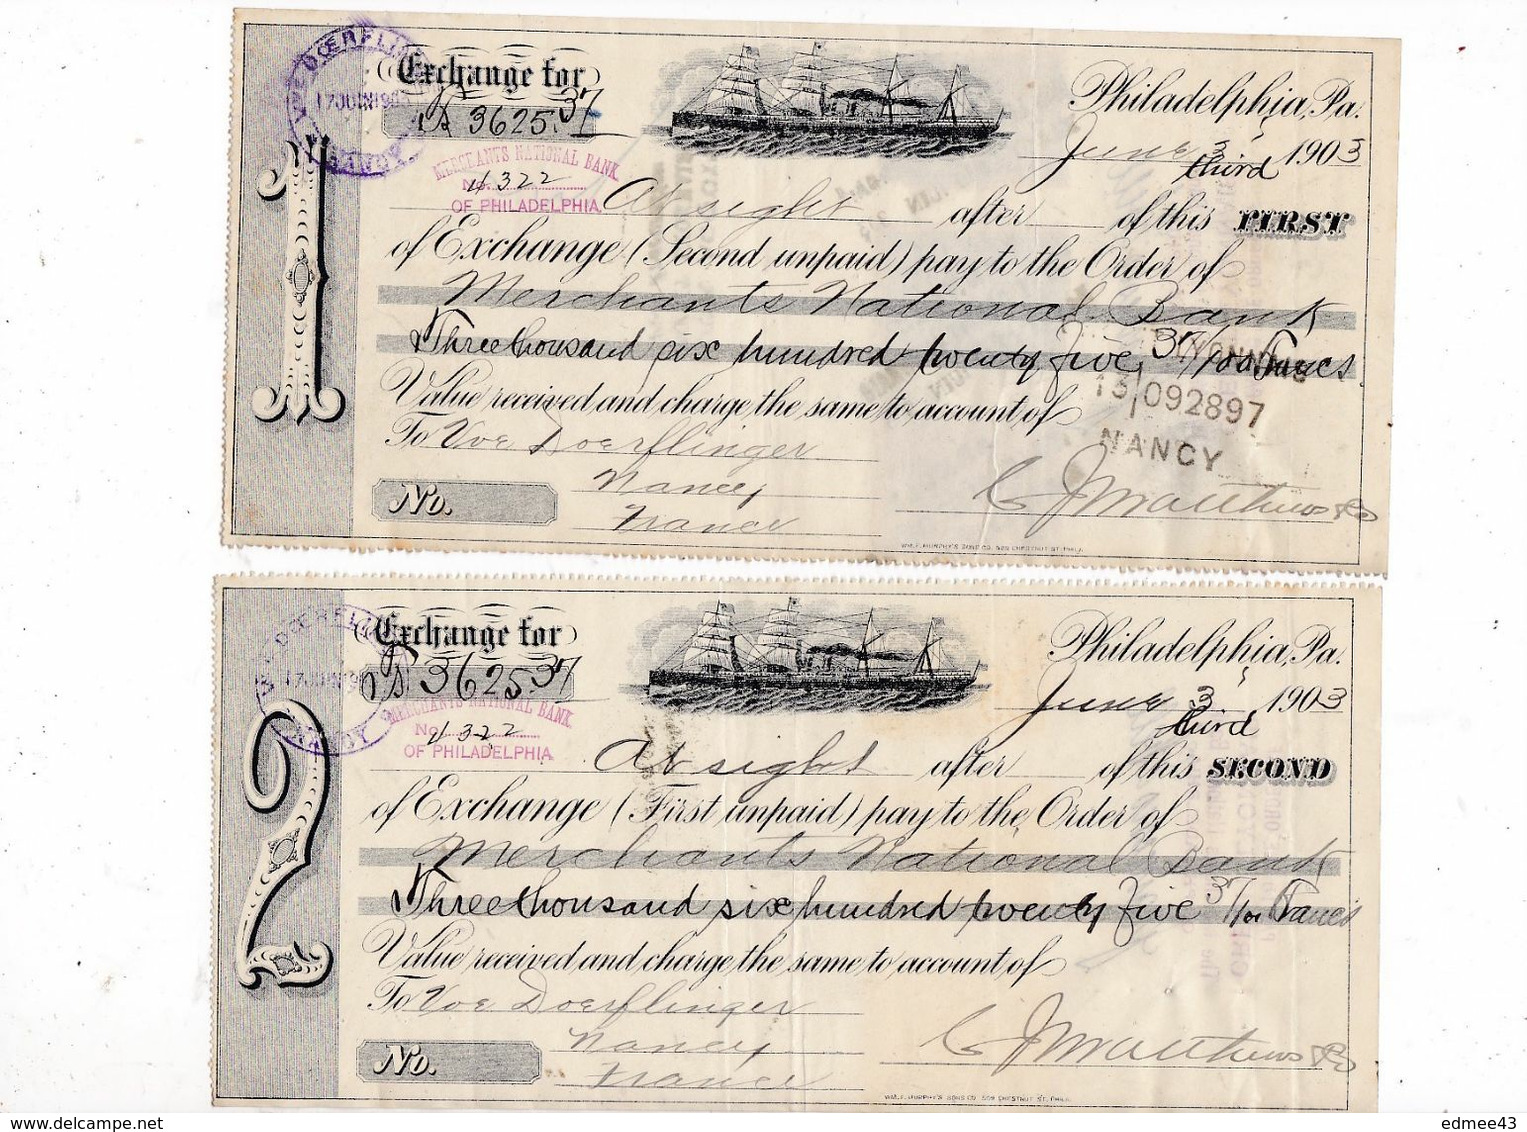 Vve DŒRFLIN
17 JUIN 190
NANCY
Exchange for
3625.37
MERCHANTS NATIONAL BANK.
No. 4322
OF PHILADELPHIA.
Philadelphia, Pa.
June 3, 1903
third
At sight after of this FIRST
of Exchange (Second unpaid) pay to the Order of
Merchants National Bank
Three thousand six hundred twenty five 37/100 Francs
13/092897
Value received and charge the same to account of
NANCY
To Vve Doerflinger
Nancy
France
No.
C J Matthews & Co
WM. F. MURPHY'S SONS CO. 509 CHESTNUT ST. PHILA.
Exchange for
3625.37
MERCHANTS NATIONAL BANK.
No. 4322
OF PHILADELPHIA.
Philadelphia, Pa.
June 3, 1903
third
At sight after of this SECOND
of Exchange (First unpaid) pay to the Order of
Merchants National Bank
Three thousand six hundred twenty five 37/100 Francs
Value received and charge the same to account of
To Vve Doerflinger
Nancy
France
No.
C J Matthews & Co
WM. F. MURPHY'S SONS CO. 509 CHESTNUT ST. PHILA.
edmee43